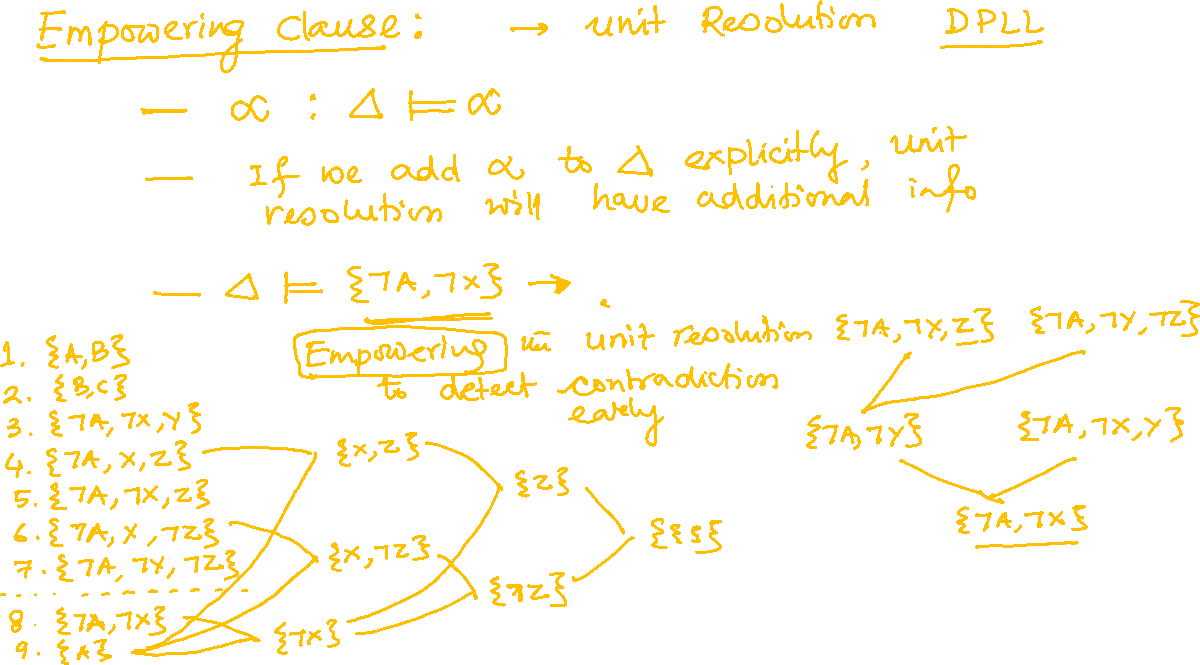 Empowering Clause: → Unit Resolution DPLL
— α : Δ ⊨ α
— If we add α to Δ explicitly, unit
resolution will have additional info
— Δ ⊨ {¬A, ¬X} →
Empowering unit resolution
to detect contradiction
early
{¬A, ¬X, Z} {¬A, ¬Y, ¬Z}
{¬A, ¬Y} {¬A, ¬X, Y}
{¬A, ¬X}
1. {A, B}
2. {B, C}
3. {¬A, ¬X, Y}
4. {¬A, X, Z}
5. {¬A, ¬X, Z}
6. {¬A, X, ¬Z}
7. {¬A, ¬Y, ¬Z}
8. {¬A, ¬X}
9. {A}
{X, Z}
{X, ¬Z}
{¬X}
{Z}
{¬Z}